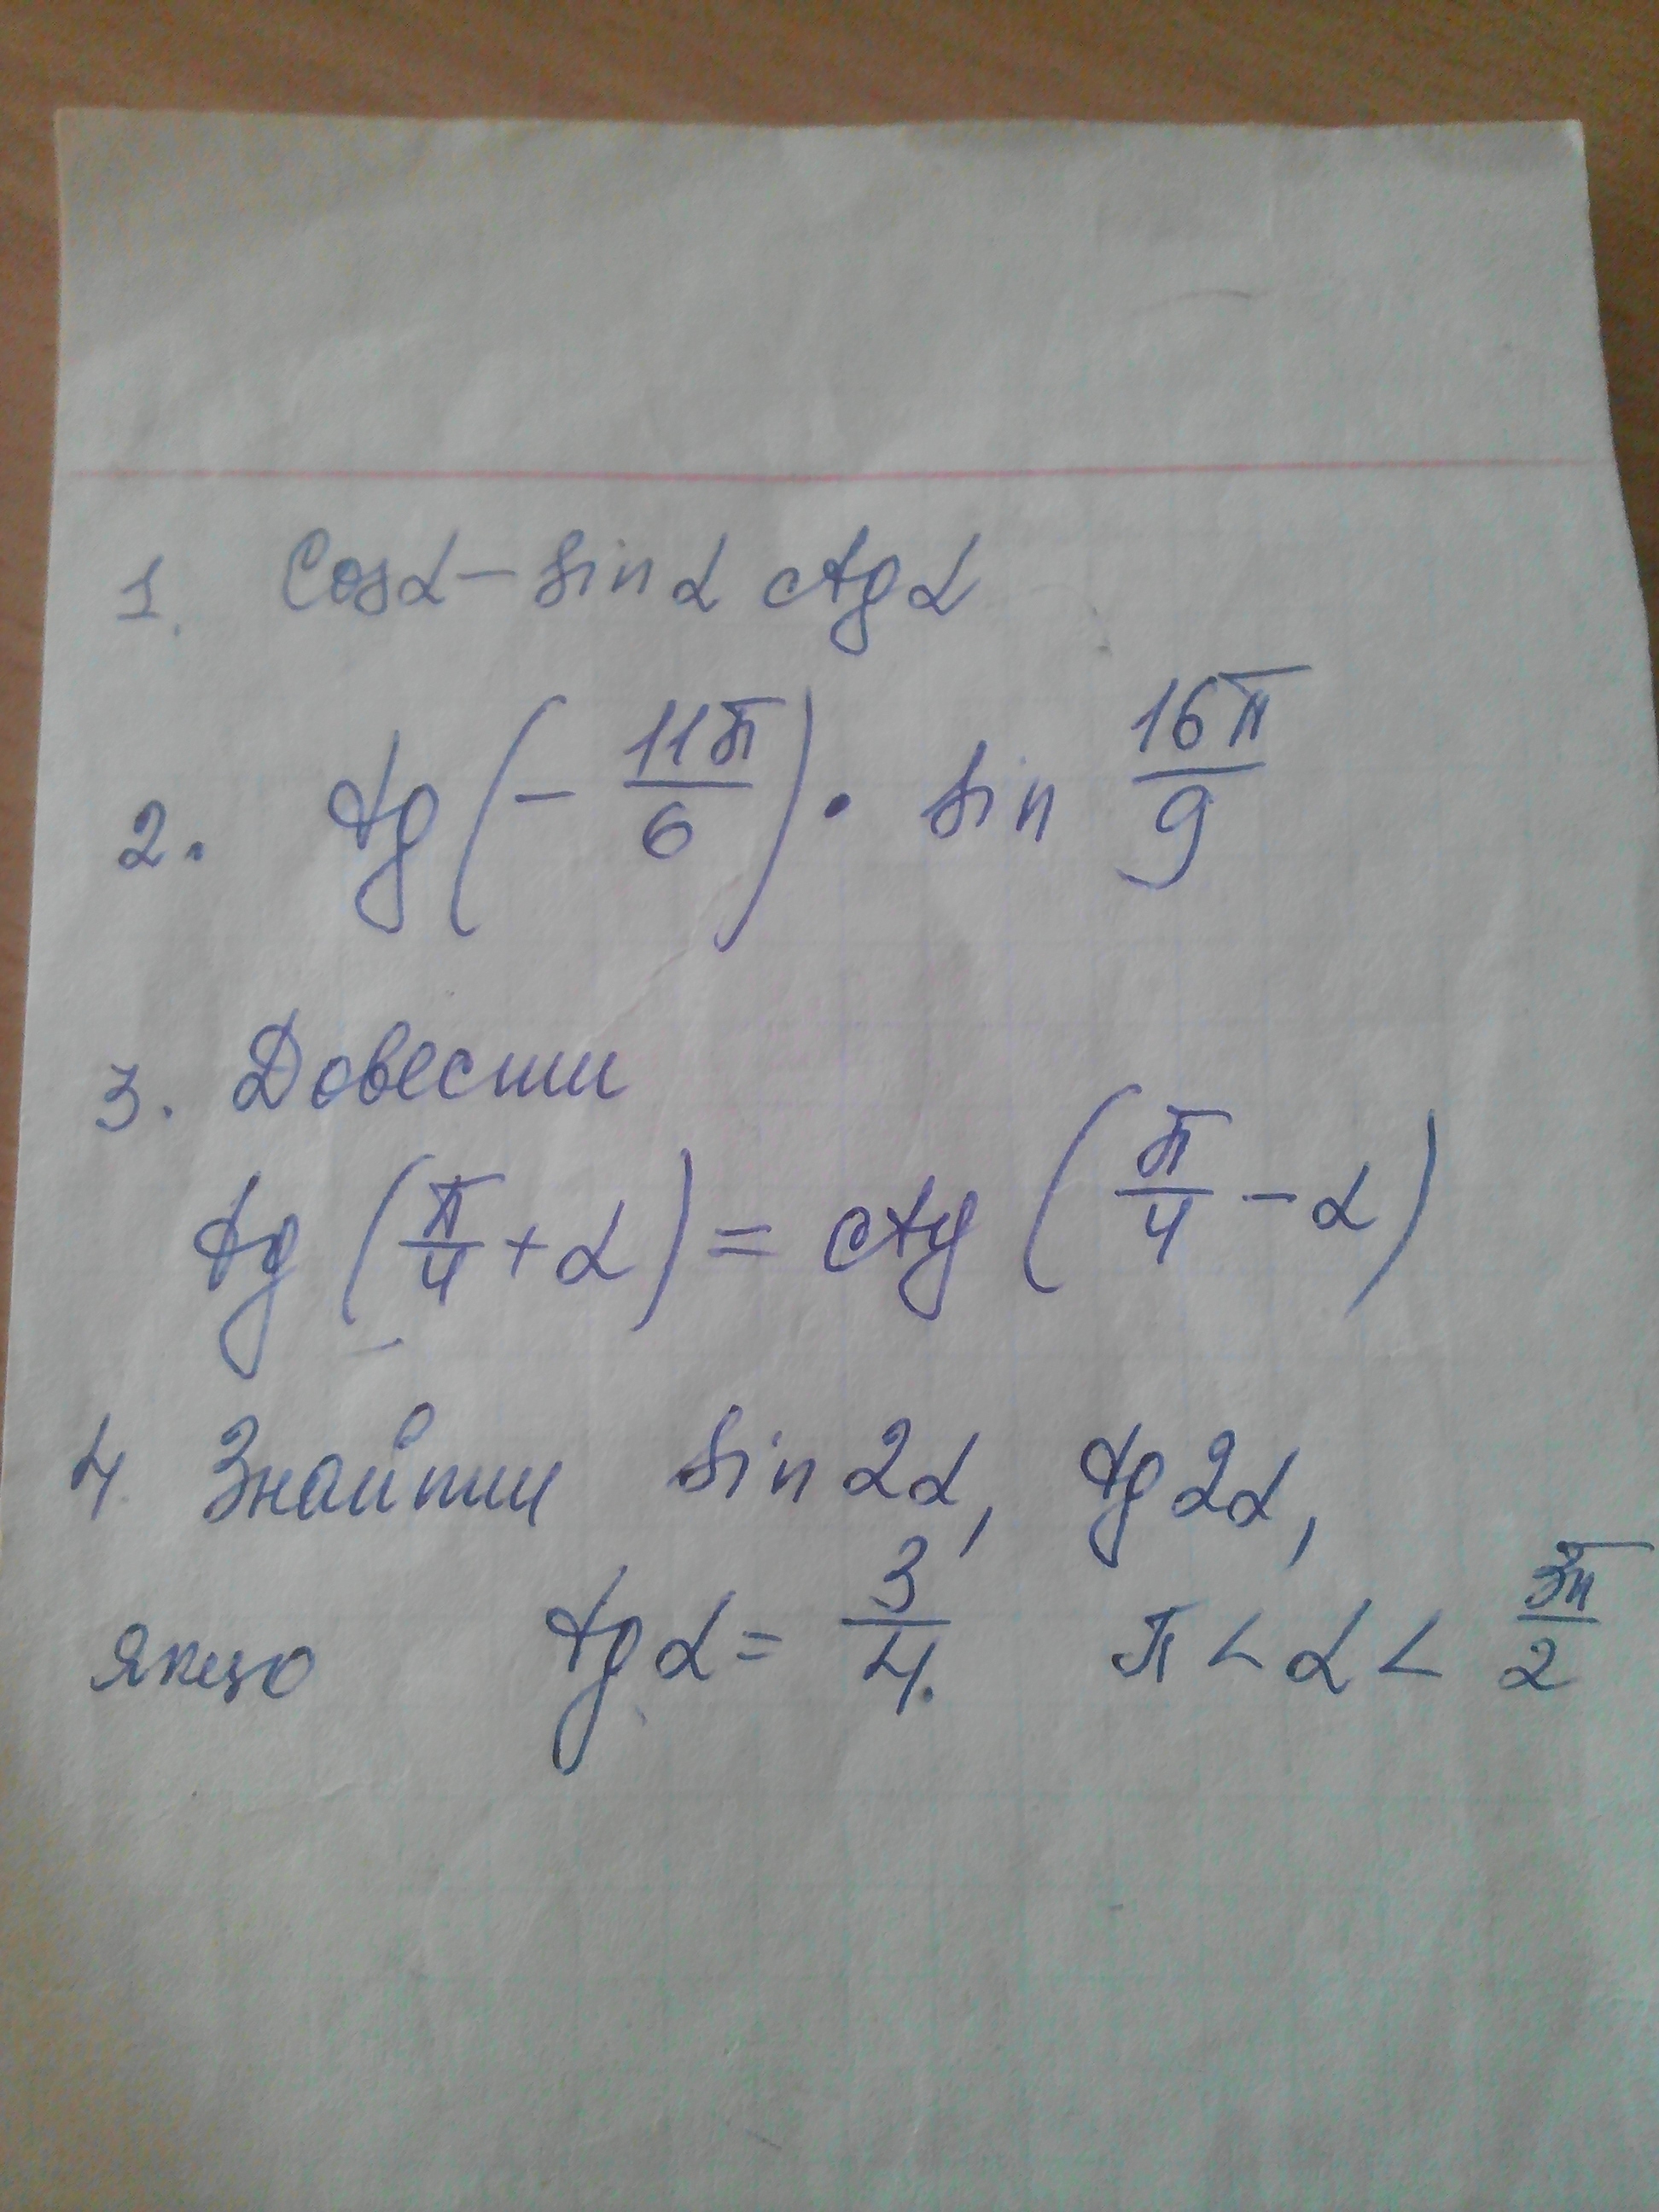 1. Cosα - sin α ctg α
2. tg (- 11π/6) · sin 16π/9
3. Довести
tg (π/4 + α) = ctg (π/4 - α)
4. Знайти sin 2α, tg 2α,
якщо tg α = 3/4. π < α < 3π/2